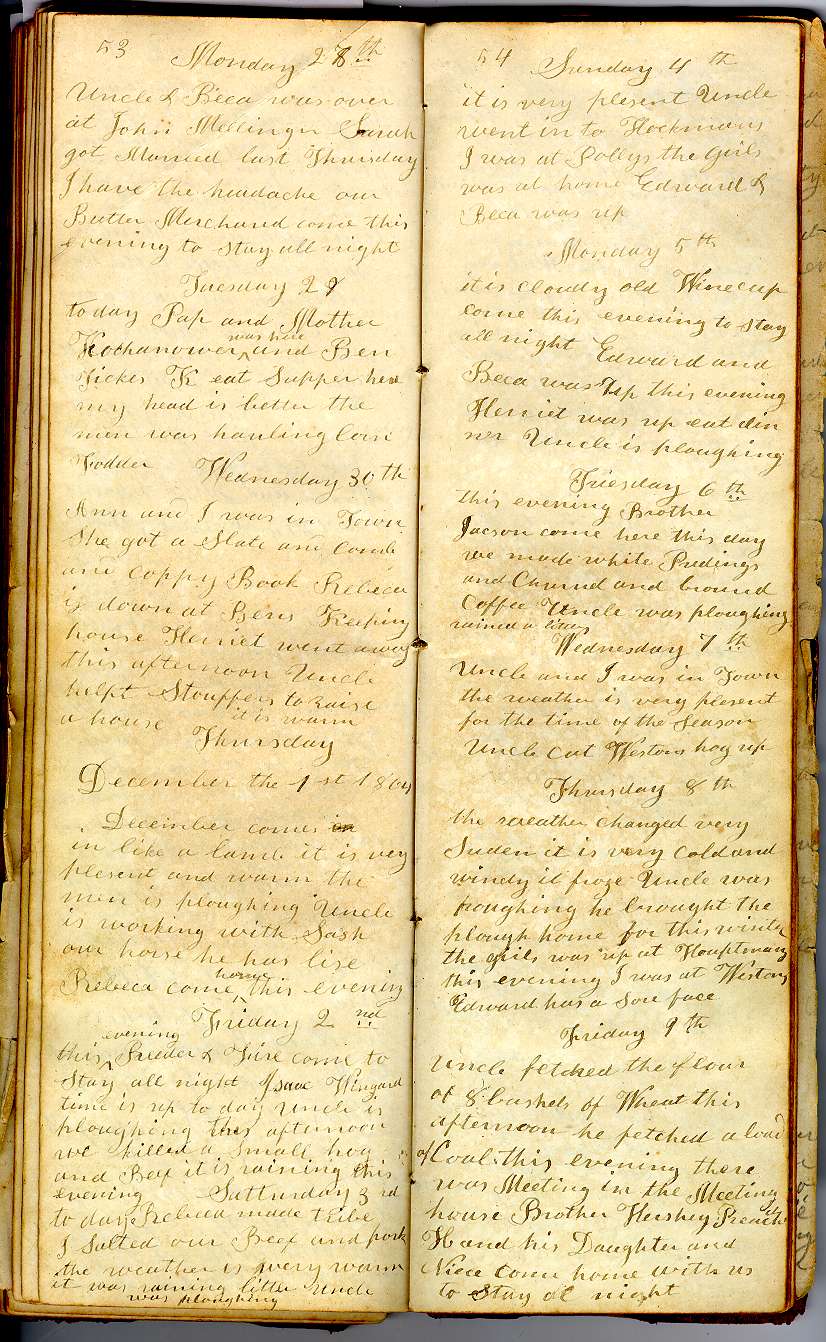 53
Monday 28th
Uncle & Beca was over
at John Mellinger Sarah
got Married last Thursday
I have the headache our
Butter Merchand come this
evening to stay all night
Tuesday 29
to day Pap and Mother
was here
Kochanower and Ben
K eat Supper here
my head is better the
men was hauling Corn
Fodder Wednesday 30th
Ann and I was in Town
She got a Slate and Comb
and Coppy Book Rebeca
is down at Bens Keeping
house Herriet went away
this afternoon Uncle
helpt Stouffers to raise
a house it is warm
Thursday
December the 1st 1864
December comes in
in like a lamb it is very
plesent and warm the
men is ploughing Uncle
is working with Sash
our horse he has lise
home
Rebeca come this evening
Friday 2nd
evening
this & come to
Stay all night Isaac Wingard
time is up to day Uncle is
ploughing this afternoon
we killed a Small hog
and Beef it is raining this
evening Satturday 3rd
to day Rebeca made
I Salted our Beef and pork
the weather is very warm
it was raining litter Uncle
was ploughing
54
Sunday 4th
it is very plesent Uncle
went in to Hockmans
I was at Pollys the girls
was at home Edward &
Beca was up
Monday 5th
it is cloudy old Winecup
come this evening to stay
all night Edward and
Beca was up this evening
Herriet was up eat din
ner Uncle is ploughing
Tuesday 6th
this evening Brother
Jacson come here this day
we made white Pudings
and Churnd and bround
Coffee Uncle was ploughing
rained a litter
Wednesday 7th
Uncle and I was in Town
the weather is very plesent
for the time of the Season
Uncle cut Westons hog up
Thursday 8th
the weather changed very
Suden it is very Cold and
windy it froze Uncle was
ploughing he brought the
plough home for this winter
the girls was up at Houptmans
this evening I was at Westons
Edward has a Sore face
Friday 9th
Uncle fetched the flour
of 8 bushels of Wheat this
afternoon he fetched a load
of Coal this evening there
was Meeting in the Meeting
house Brother Hershey Preach
H and his Daughter and
Niece come home with us
to Stay al night